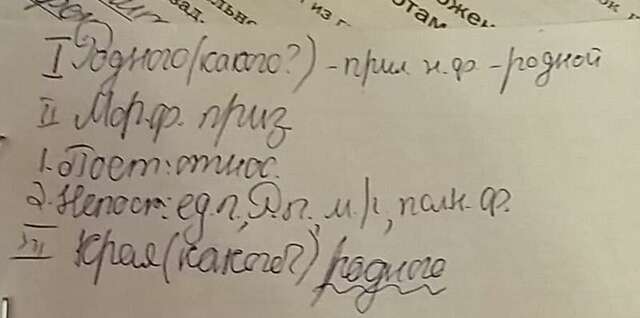 ьзад.
ельно
из г
отам
ожен
I Родного (какого?) - прил. н.ф. - родной
II Морф. приз
1. Пост: относ.
2. Непост: ед.ч, Р.п, м.р, полн. ф.
III Края (какого?) родного